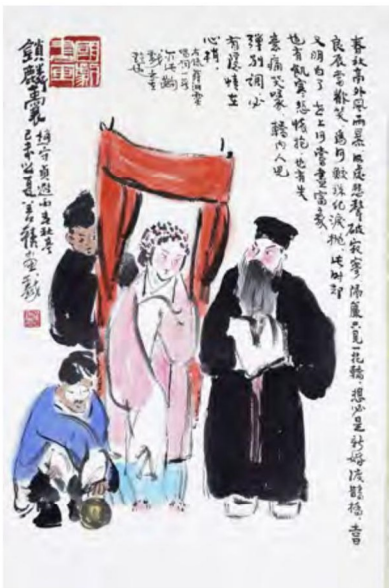 春秋亭外风雨暴何處悲聲破寂寥隔簾只見一花轎想必是新婚渡鵲橋吉日
良辰当歡笑爲何鮫珠化淚抛此时却
又明白了世上何嘗盡富豪
也有飢寒悲怀抱也有失
意痛哭嚎轎内人兒
弹别调必
有隐情在
心潮
鎖麟囊
避雨春秋亭